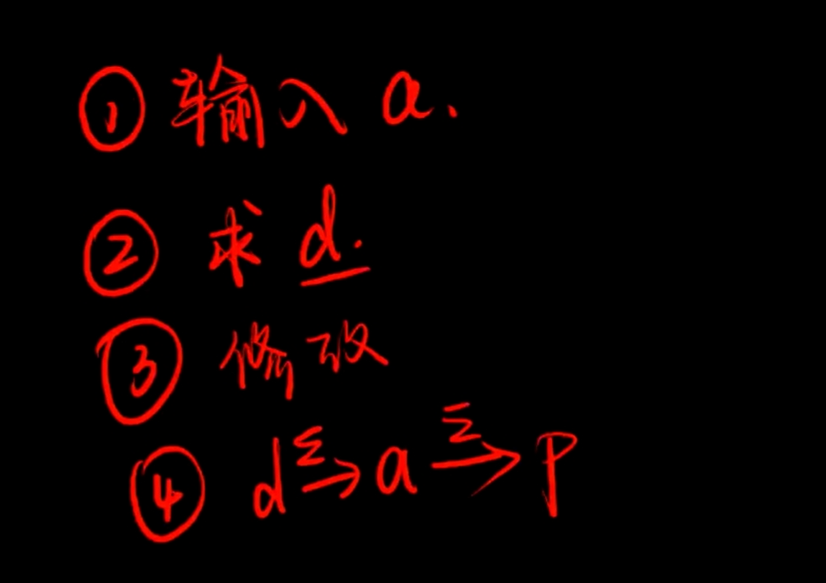 ① 输入 a.
② 求 d.
③ 修改
④ d →Σ a →Σ p